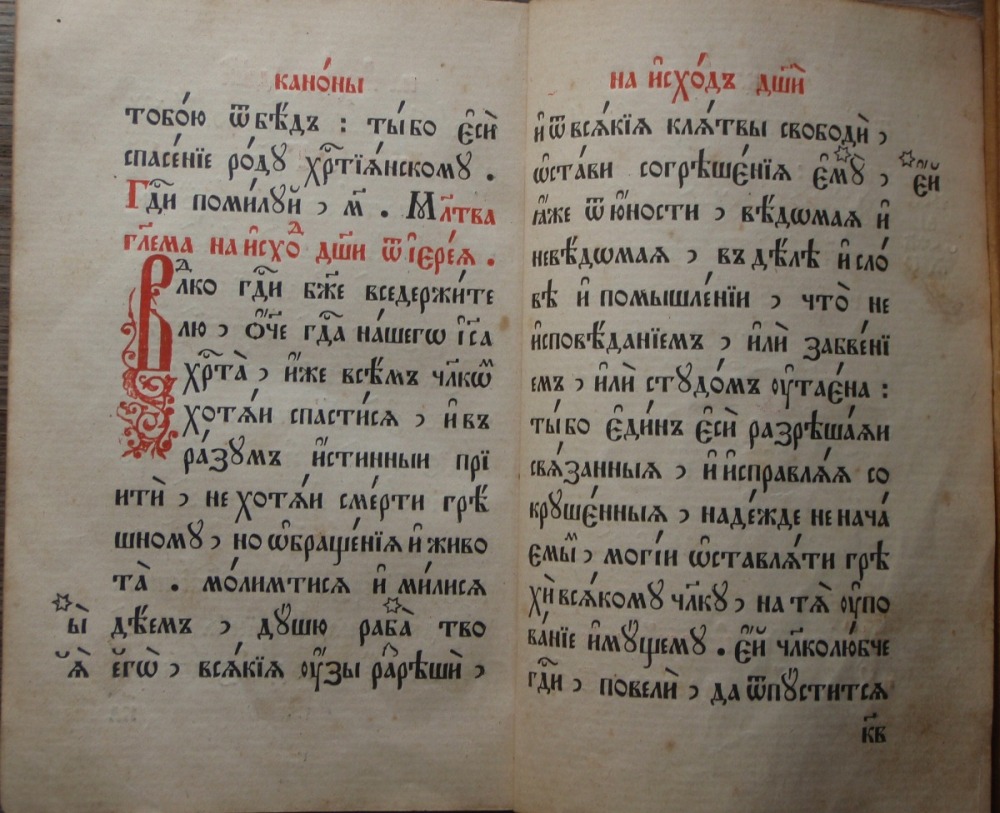 кано́ны
тобо́ю ѿбѣ́дъ : ты́ бо є҆сѝ
спасе́нїе ро́дꙋ хрⷭ҇тїѧ́нскомꙋ .
Гдⷭ҇и поми́лꙋй , м҃ . Мл҃тва
гл҃ема на и҆схоⷣ дш҃и ѿ і҆ере́ѧ .
Влⷣко гдⷭ҇и бж҃е вседержи́те
лю , ѻ҆́ч҃е гдⷭ҇а на́шегѡ і҆с҃а
хрⷭ҇та̀ , и҆́же всѣ́мъ чл҃кѡⷨ
хотѧ́и спасти́сѧ , и҆ въ
ра́зꙋмъ и҆́стинныи прї
итѝ , не хотѧ́и сме́рти грѣ́
шномꙋ , но ѡ҆браще́нїѧ и҆ живо
та̀ . мо́лимтисѧ и҆ ми́лисѧ
ы̀ дѣ́емъ , дꙋ́шю раба̀ тво
ѧ̀ єгѡ̀ , всѧ́кїѧ ᲂу҆́зы раⷥрѣшѝ ,
на и҆схо́дъ дш҃ѝ
и҆ ѿ всѧ́кїѧ клѧ́твы свободѝ ,
ѡ҆ста́ви согрѣше́нїѧ є҆мꙋ̀ , є҆́й
ꙗ҆́же ѿ ю҆́ности , вѣ́дѡмаѧ и҆
невѣ́дѡмаѧ , въ дѣ́лѣ и҆ сло́
вѣ и҆ помышле́нїи , что̀ не
и҆сповѣ́данїемъ , и҆лѝ забве́нї
емъ , и҆лѝ стꙋдо́мъ ᲂу҆тае́на :
ты́ бо є҆ди́нъ є҆сѝ разрѣша́ѧи
свѧ́занныѧ , и҆ и҆справлѧ́ѧ со
крꙋше́нныѧ , наде́жде не нача́
емыⷨ , моги́и ѡ҆ставлѧ́ти грѣ
хѝ всѧ́комꙋ чл҃кꙋ , на тѧ̀ ᲂу҆по
ва́нїе и҆мꙋ́щемꙋ . є҆́й чл҃колю́бче
гдⷭ҇и , повелѝ , да ѿпꙋ́стится
к҃в